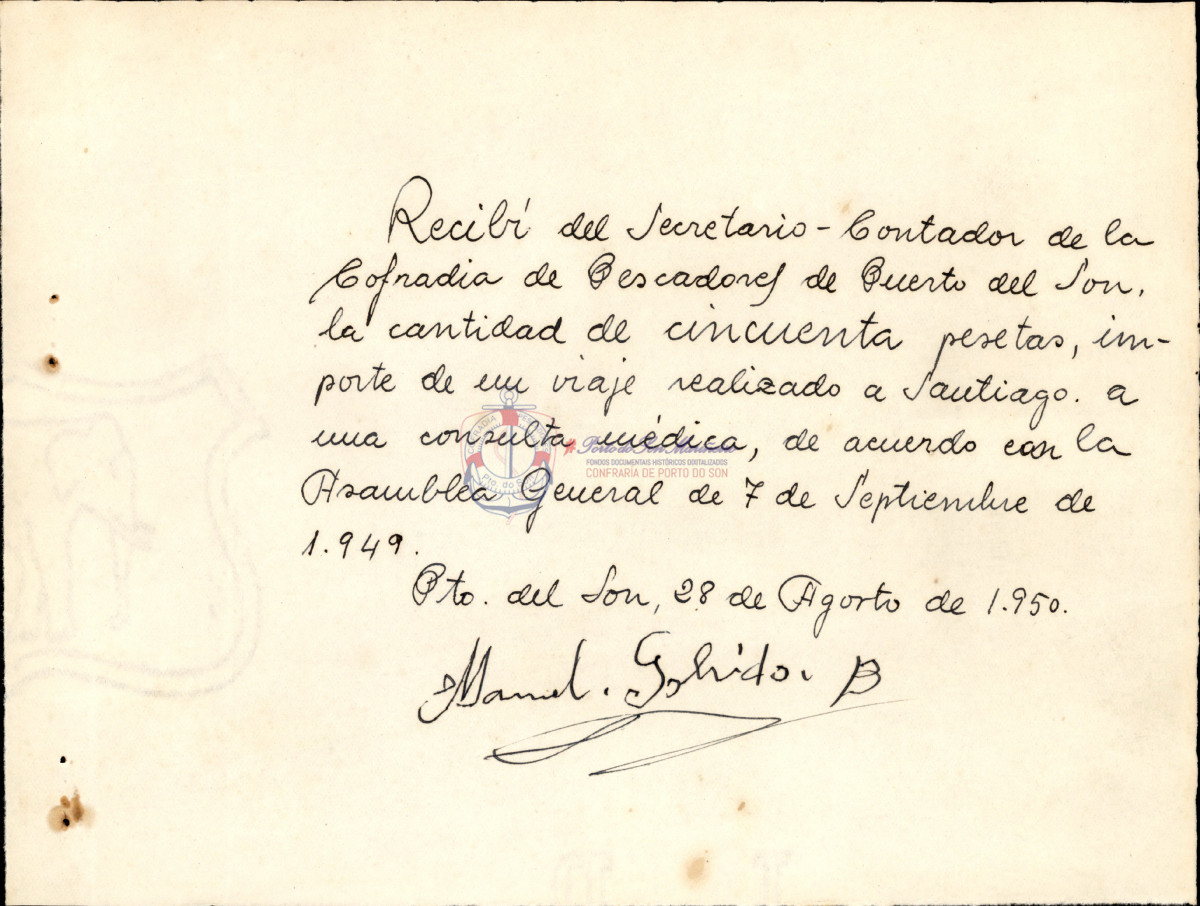 Recibí del Secretario-Contador de la
Cofradia de Pescadores de Puerto del Son,
la cantidad de cincuenta pesetas, im-
porte de un viaje realizado a Santiago. a
una consulta médica, de acuerdo con la
Asamblea General de 7 de Septiembre de
1.949.
Pto. del Son, 28 de Agosto de 1.950.
Manuel
B
Porto do Son
FONDOS DOCUMENTAIS HISTÓRICOS DIXITALIZADOS
CONFRARÍA DE PORTO DO SON
Pto. do Son